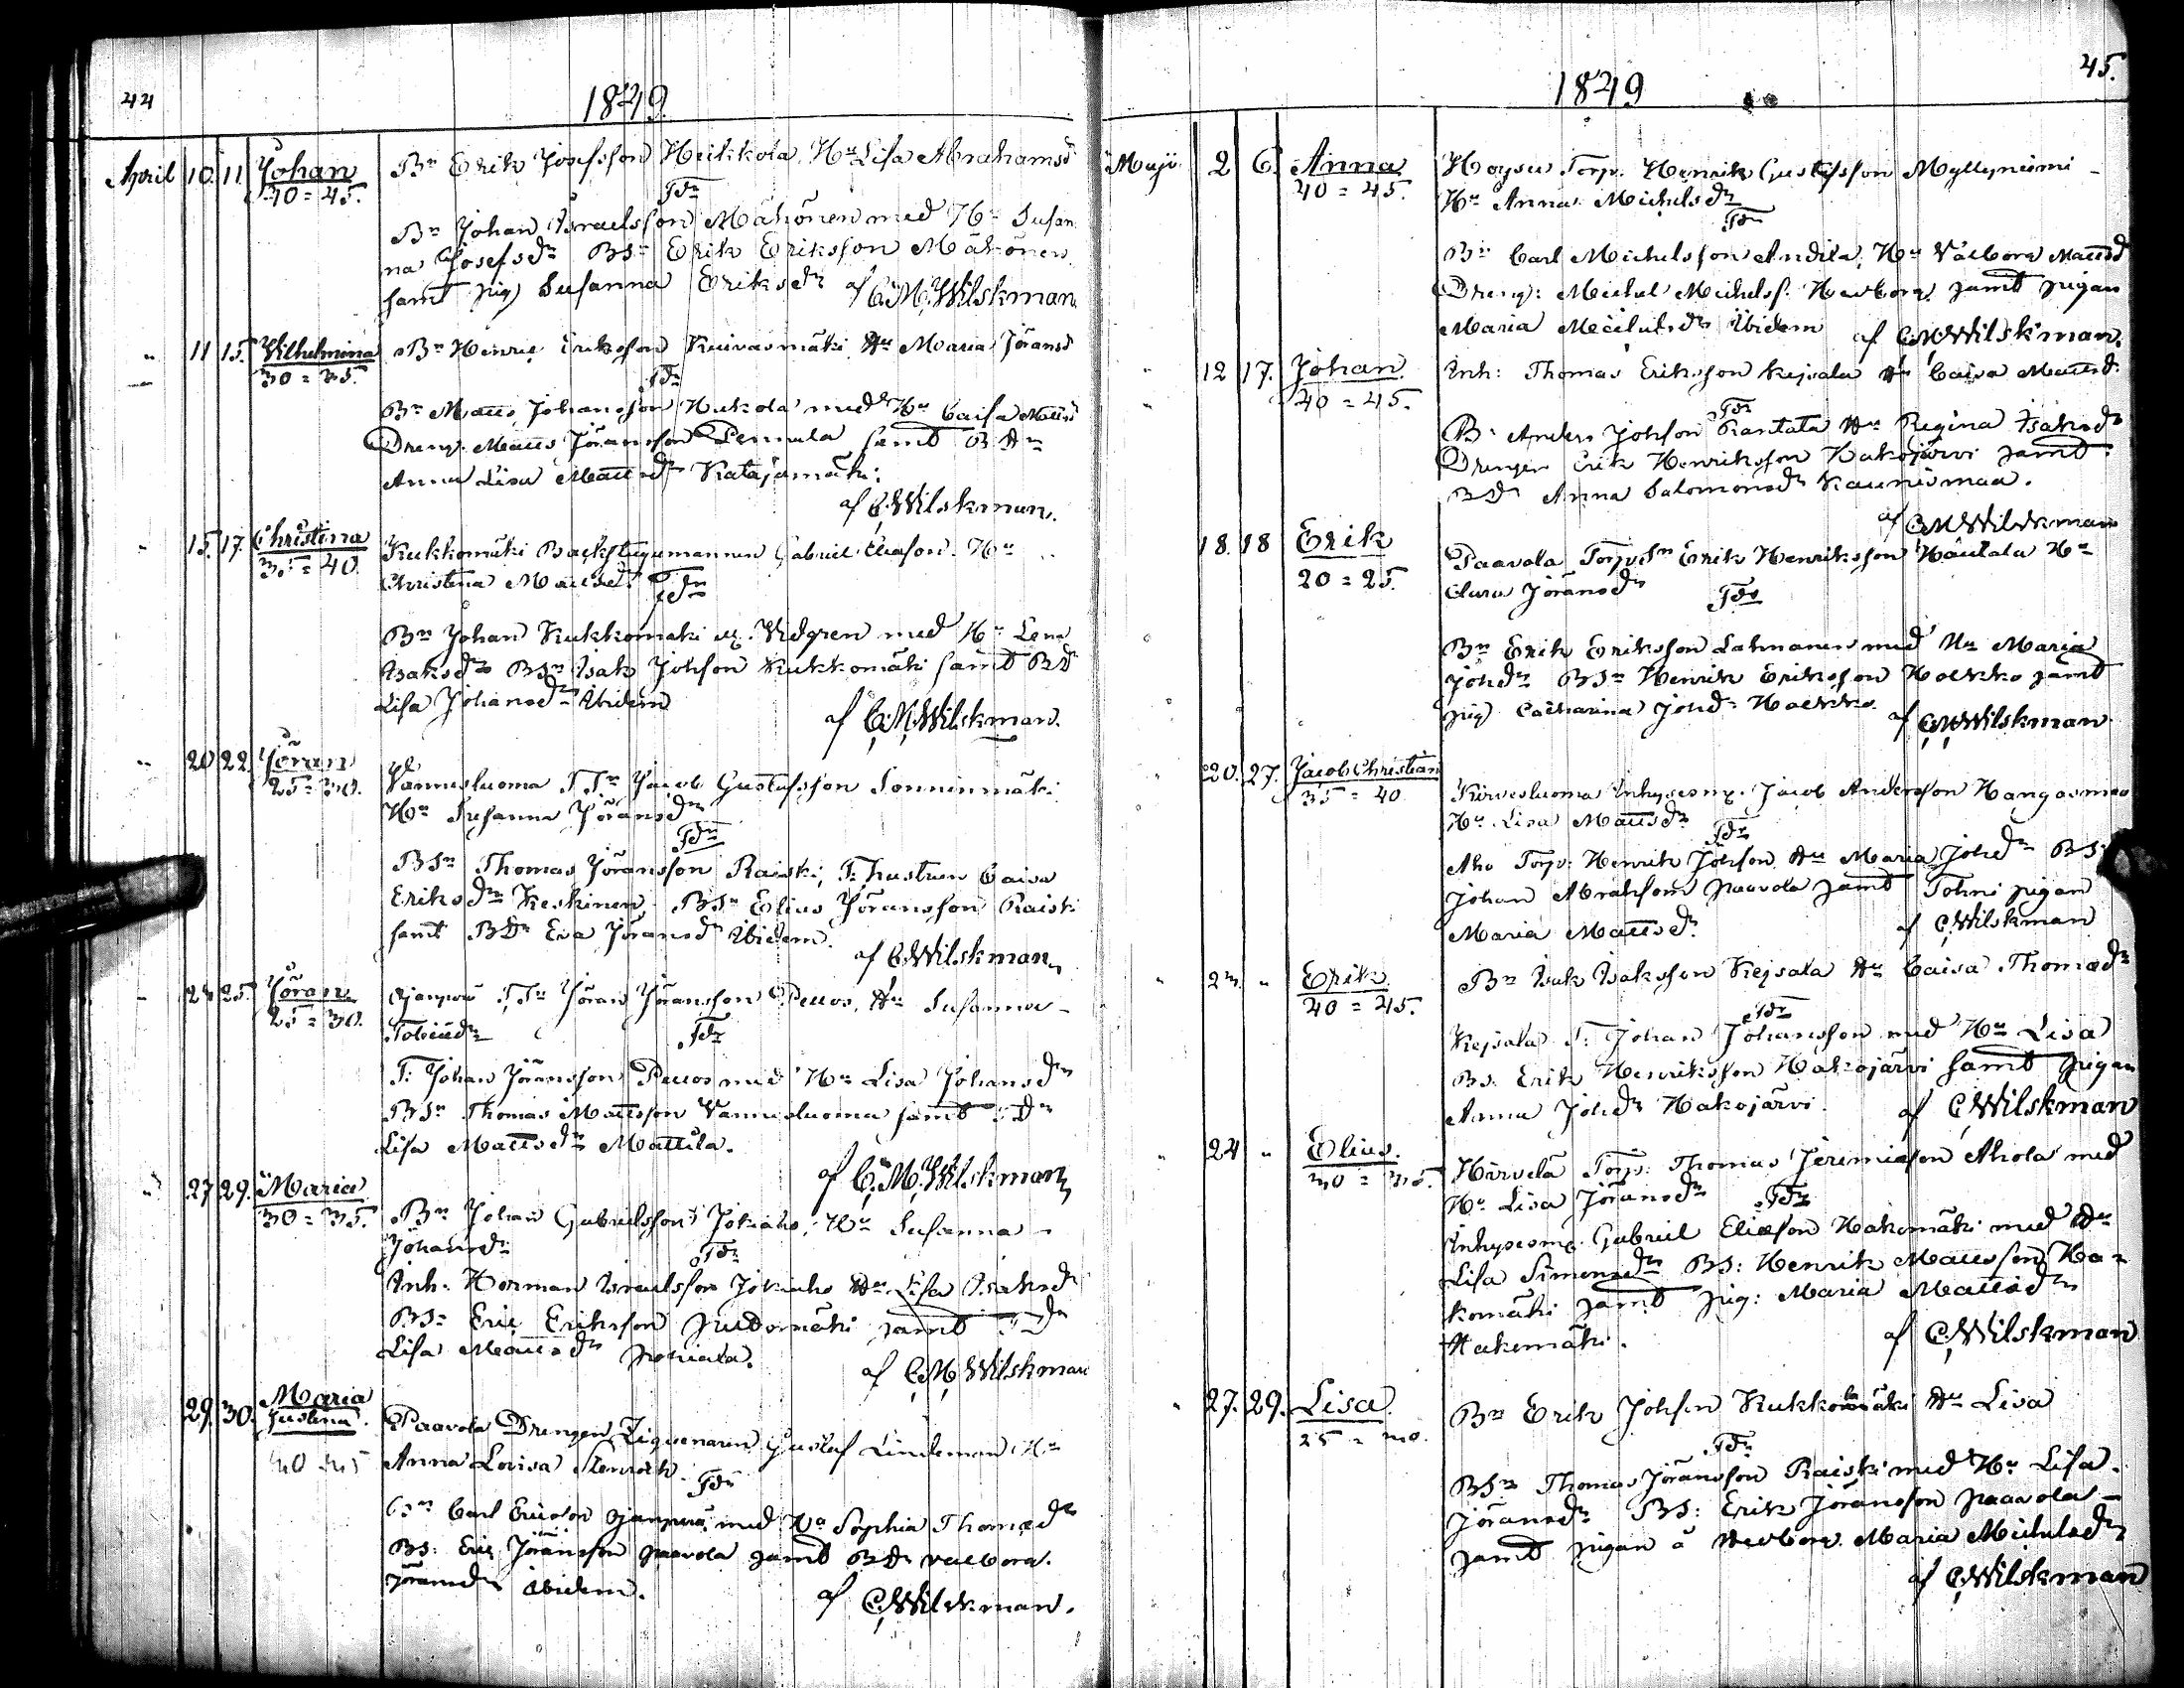 44
1849.
April 10. 11. Johan
40 = 45.
Bn Erik Josefsson Heikkola, Hu Lisa Abrahamsd
Fdr
Bn Johan Israelsson Mähönen med Hu Susan
na Josefsdr BSn Erik Eriksson Mähönen
samt pig Susanna Eriksdr af C.M.Wilskman
" 11 15. Wilhelmina
30 = 35.
Bn Henric Eriksson Kuivasmäki Hu Maria Jöransd
Fdr
Bn Matts Johansson Hukola med Hu Caisa Mattsd
Dreng. Matts Jöransson Pennala samt B Dr
Anna Lisa Mattsdr Katajamäki:
af C.Wilskman.
" 15. 17. Christina
35 = 40.
Kukkomäki Backstugumannen Gabriel Eliasson. Hu
Christina Mattsdr
Fdr
Bn Johan Kukkomäki med Hu Lena
Isaksdr BSn Isak Johsson Kukkomäki samt BD
Lisa Johansdr Ibidem
af C.M.Wilskman.
" 20 22. Jöran
25 = 30.
Vannusluoma T.Sn Jacob Gustafsson Sonninmäki
Hu Susanna Jöransdr
Fdr
BSn Thomas Jöransson Raiski, T. hustrun Caisa
Eriksdr Keskinen BSn Elias Jöransson Raiski
samt BDr Eva Jöransdr Ibidem.
af C.Wilskman
" 24 25. Jöran
25 = 30.
T.Sn Jöran Jöransson Peuos, Hu Susanna
Tobiædr
Fdr
T: Johan Jöransson Peuos med Hu Lisa Johansdr
BSn Thomas Mattsson Vannusluoma samt Dr
Lisa Mattsdr Mattila.
af C.M.Wilskman
" 27 29. Maria
30 = 35.
Bn Johan Gabrielsson Jokiaho, Hu Susanna
Johansdr
Fdr
Inh. Herman Israelsson Jokiaho Hu Lisa Isaksdr
BSn Eric Eriksson samt Dr
Lisa Mattsdr
af C.M.Wilskman
29. 30. Maria
Justina.
40 45
Paavola Drengen Ziguenaren Gustaf Lindeman Hu
Anna Lovisa Stenrot
Fdr
Bn Carl Ericsson med Hu Sophia Thomædr
BS: Eric Jöransson Paavola samt BDr Valborg
Jöransdr Ibidem.
af C.Wilskman.
45.
1849
Maji 2 6. Anna
40 = 45.
Torp. Henrik Gustafsson Myllyniemi
Hu Anna Michelsdr
Fdr
Bn Carl Michelsson Andila, Hu Valborg Mattsd
Dreng: Michel Michelss. samt pigan
Maria Michelsdr Ibidem
af C.M.Wilskman.
" 12 17. Johan
40 = 45.
Inh: Thomas Eriksson Kejsala Hu Caisa Mattsd.
Fdr
B. Anders Johsson Rantala Hu Regina Isaksdr
Drengen Erik Henriksson Hakojärvi samt
BDr Anna Salomonsdr Kaunismaa.
af C.M.Wilskman
18. 18 Erik
20 = 25.
Paavola Torp.Sn Erik Henriksson Hautala Hu
Clara Jöransdr
Fdr
Bn Erik Eriksson Lahnanen med Hu Maria
Johdr BSn Henrik Eriksson Hoekko samt
pig Catharina Johdr Hoekko.
af C.M.Wilskman
20. 27. Jacob Christian
35 = 40
Kirvesluoma Inhysesm. Jacob Andersson Kangasmaa
Hu Lisa Mattsdr
Fdr
Aho Torp: Henrik Johsson Hu Maria Johdr BS:
Johan Abrahsson Paavola samt Tohni pigan
Maria Mattsdr
af C.Wilskman
" 23. " Erik
40 = 45.
Bn Isak Isaksson Kejsala Hu Caisa Thomædr
Fdr
Kejsala T: Johan Johansson med Hu Lisa
BS. Erik Henriksson Hakojärvi samt pigan
Anna Johdr Hakojärvi.
af C.Wilskman
" 24 " Elias.
30 = 35.
Hirvelä Torp: Thomas Jeremiæsson Ahola med
Hu Lisa Jöransdr
Fdr
Inhysesm. Gabriel Eliæson Hakomäki med Hu
Lisa Simonsdr BS: Henrik Mattsson Ha=
komäki samt pig: Maria Mattsdr
Hakomäki.
af C.Wilskman
" 27. 29. Lisa
25 = 30.
Bn Erik Johsson Hu Lisa
Fdr
BSn Thomas Jöransson Raiski med Hu Lisa
Jöransdr BS: Erik Jöransson Paavola
samt pigan å Maria Michelsdr
af C.Wilskman